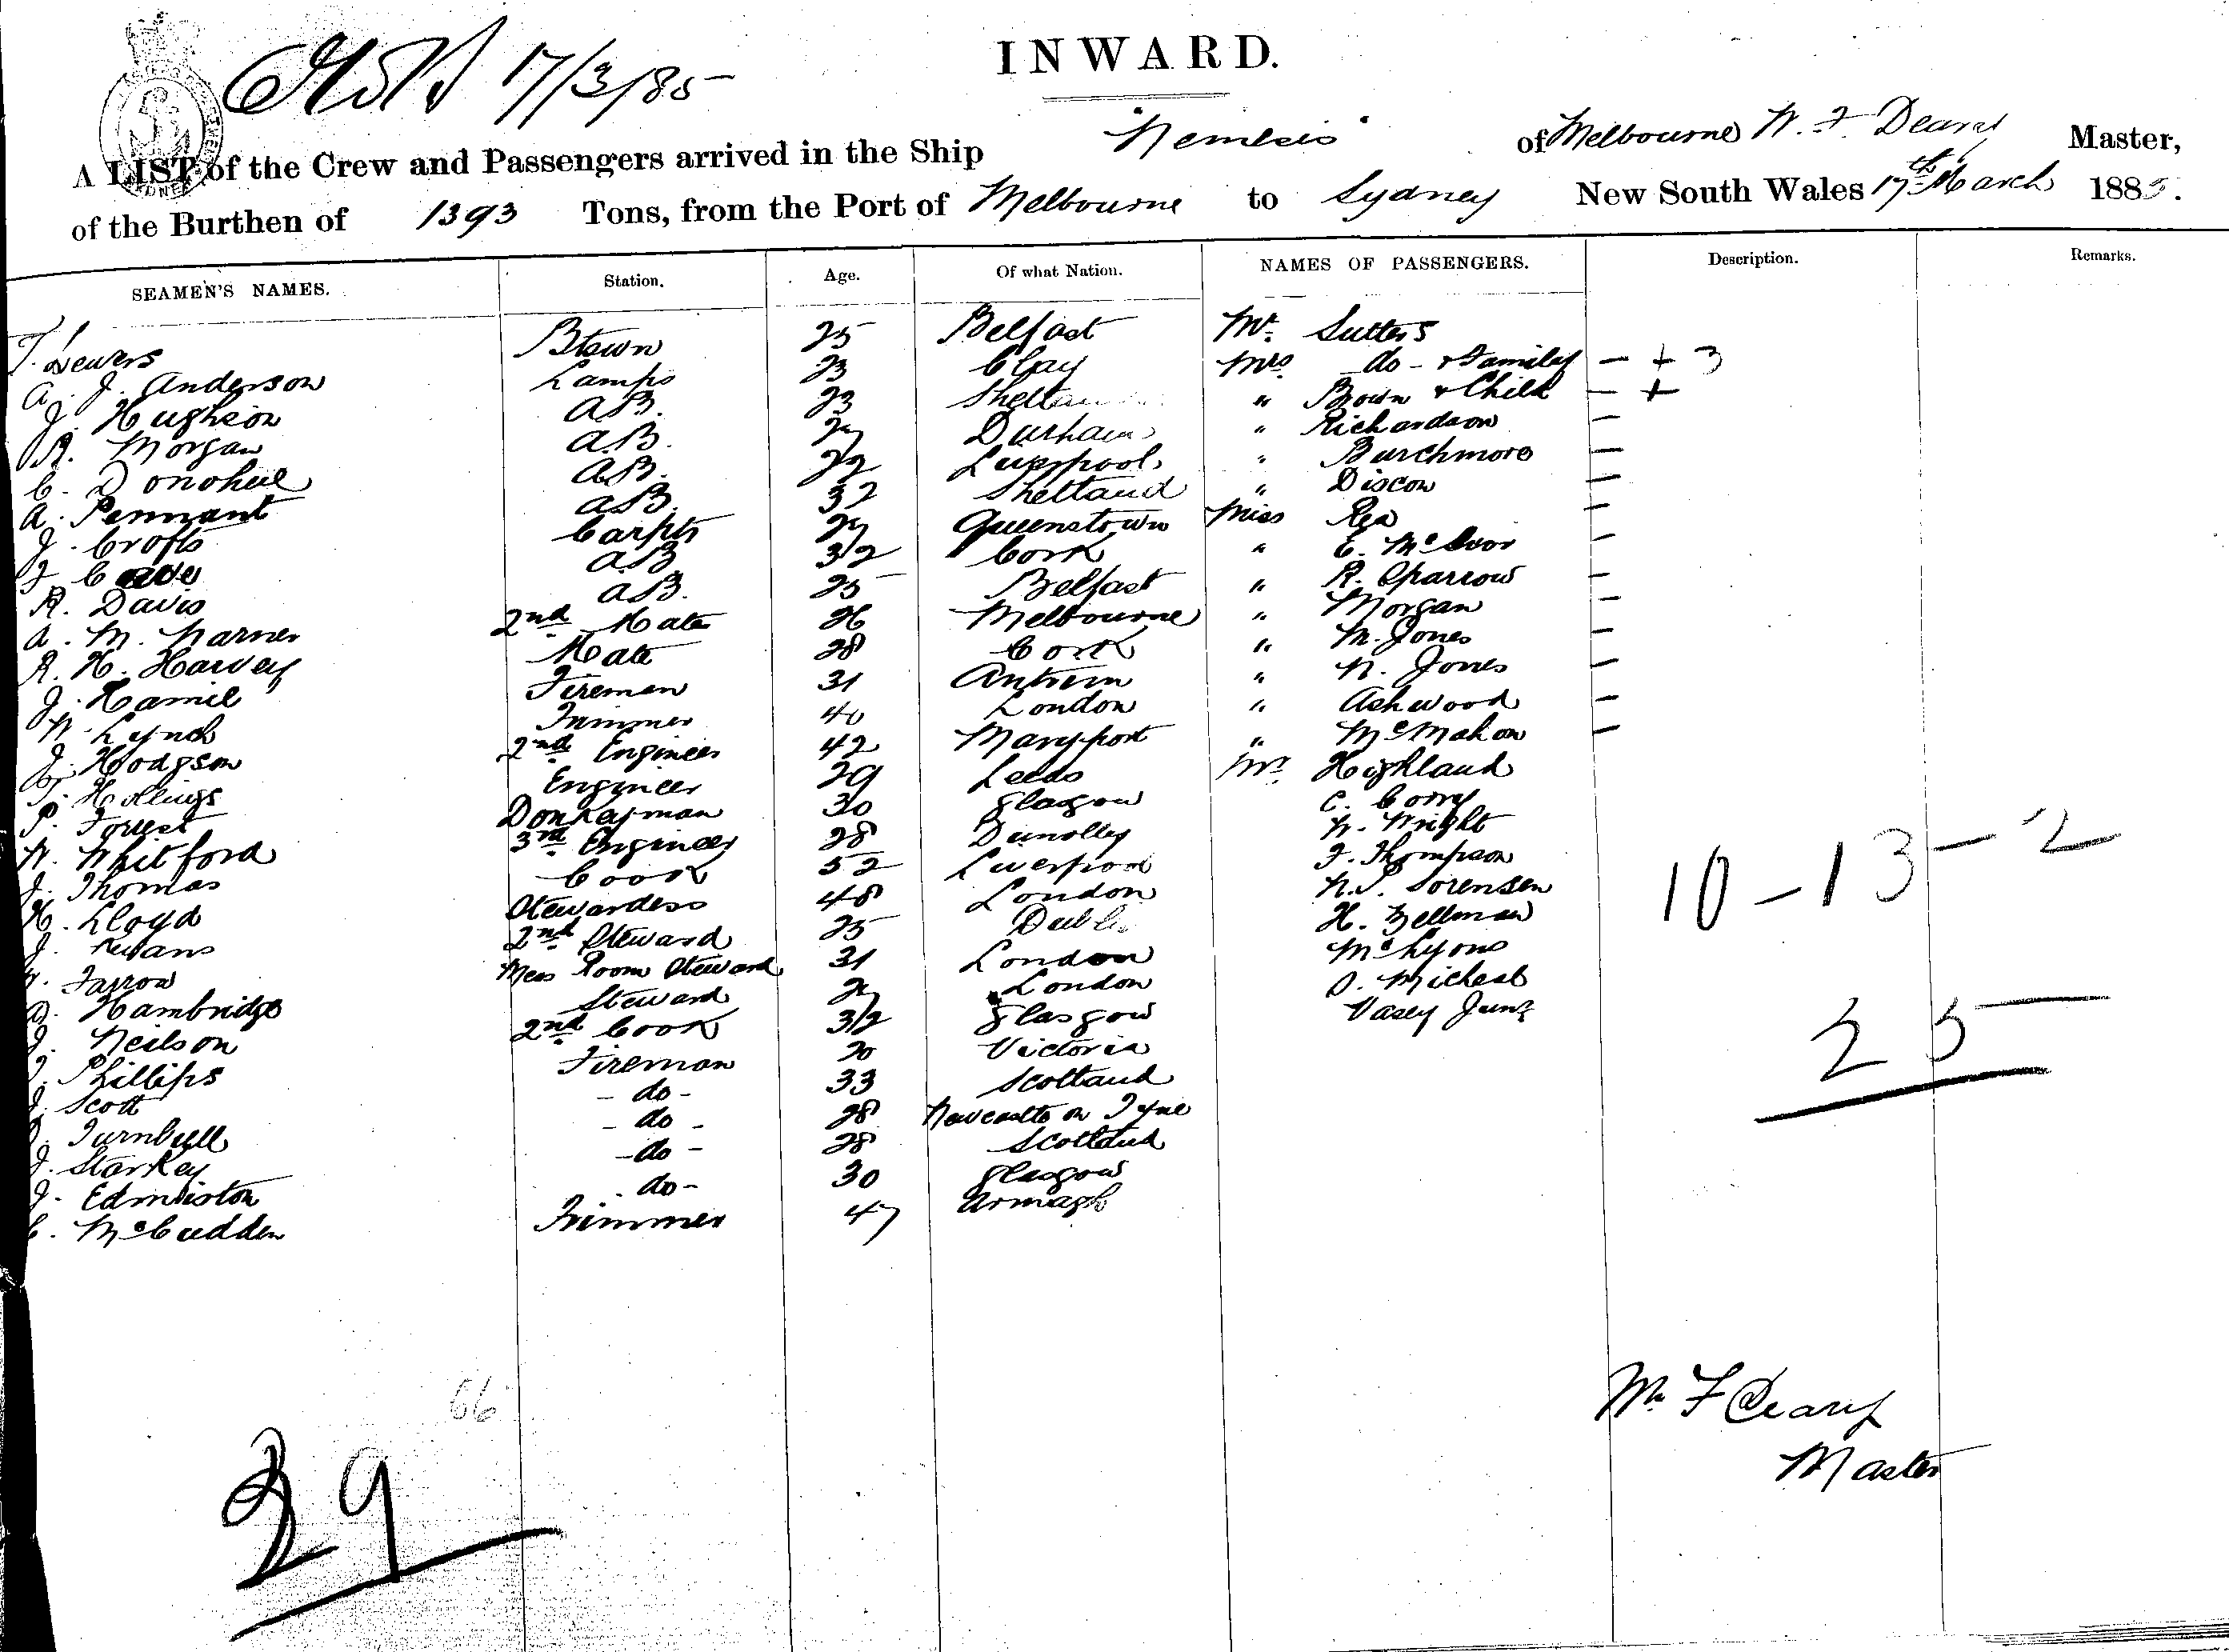 17/3/85
INWARD.
A LIST of the Crew and Passengers arrived in the Ship "Nemesis" of Melbourne W. F. Deary Master,
of the Burthen of 1393 Tons, from the Port of Melbourne to Sydney New South Wales 17th March 1885.
SEAMEN'S NAMES. Station. Age. Of what Nation. NAMES OF PASSENGERS. Description. Remarks.
T. Sewers Btswn 25 Belfast Mr. Sutters
A. J. Anderson Lamps 23 Clay Mrs do - & Family - + 3
J. Hughson AB. 23 Shetland " Brown & Child - +
R. Morgan AB. Durham " Richardson -
C. Donohue AB. 22 Liverpool " Burchmore -
A. Pennant AB. 32 Shetland " Discon -
J. Crofts Carptr Queenstown Miss Rea -
J. AB 32 Cork " E. McIvor -
R. Davis AB. 25 Belfast " R. Sparrow -
A. M. Warner 2nd Mate 26 Melbourne " Morgan -
R. H. Harvey Mate 28 Cork " M. Jones -
J. Hamil Fireman 31 Antrim " N. Jones -
W. Lynch Trimmer 40 London " Ashwood -
J. Hodgson 2nd Engineer 42 Maryport " McMahon -
Hollings Engineer 29 Leeds Mr. Highland
P. Forrest Donkeyman 30 Glasgow C. Corry
W. Whitford 3rd Engineer 28 Dunolly W. Wright
J. Thomas Cook 52 Liverpool F. Thompson
H. Lloyd Stewardess 48 London N.P. Sorensen
J. 2nd Steward 25 Dublin H. Zellman
Farrow Mess Room Steward 31 London McLyons
Hambridge Steward London D. Micheal
J. Neilson 2nd Cook 32 Glasgow Vasey Junr
Phillips Fireman 20 Victoria
J. Scott - do - 33 Scotland
Turnbull - do - 28 Newcastle on Tyne
J. Starkey - do - 28 Scotland
J. Edmiston do - 30 Glasgow
C. McCudden Trimmer 47 Armagh
10 - 13 - 2
25
66
29
Wm F Deary
Master